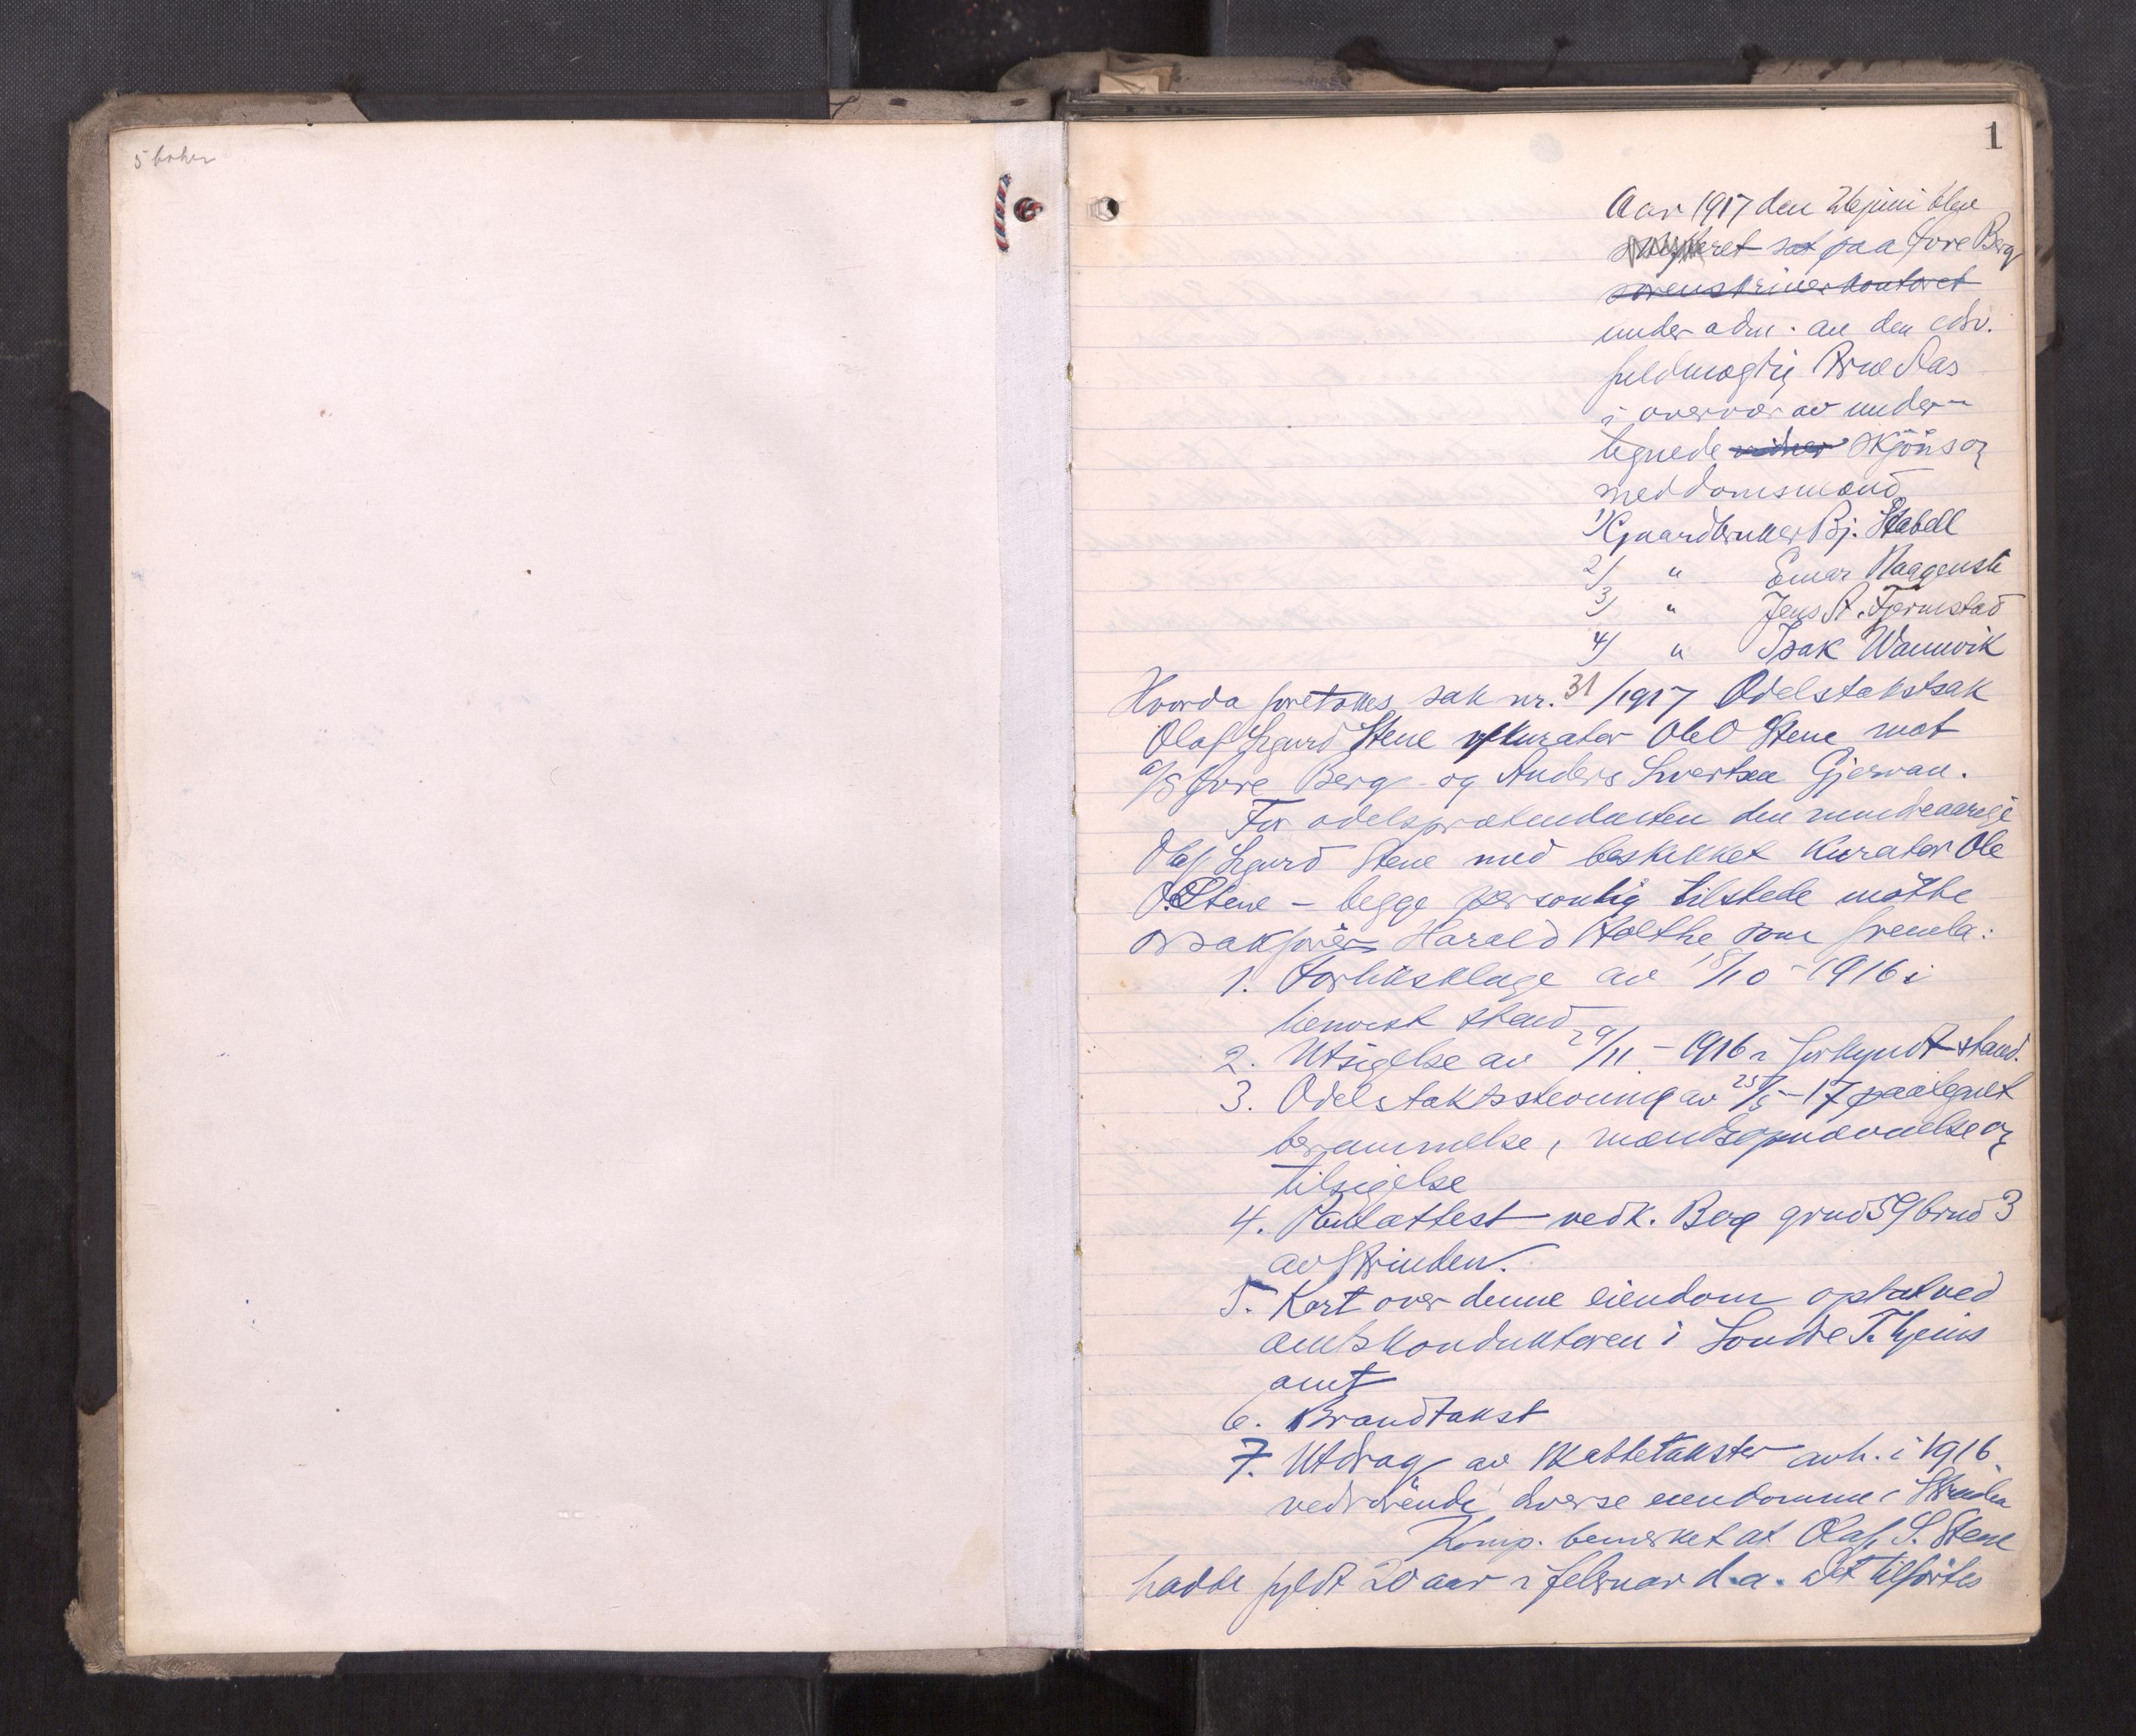 5 bøker
1
Aar 1917 den 26 juni blev
ret sat paa Øvre Berg
sorenskriverkontoret
under adm. av den edsv.
fuldmægtig Arne Aas
i overvær av under-
tegnede vidner Skjøns og
meddomsmænd
1) Gaardbruker Bj. Stabell
2) " Einar
3) " Jens A. Tjermstad
4) " Isak Wannvik
Hvorda foretokes sak nr. 31/1917 Odelstakstsak
Olaf Sigurd Stene v/kurator Ole O Stene mot
a/s Øvre Berg og Anders Sivertsen Gjervan.
For odelsprætendenten den mindreaarige
Olaf Sigurd Stene med beskikket kurator Ole
O. Stene – begge personlig tilstede møtte
o.r.sakfører Harald Holthe som fremla:
1. Forliksklage av 18/10 – 1916 i
henvist stand
2. Utsigelse av 29/11 – 1916 i forkyndt stand.
3. Odelstakstsstevning av 25/5 – 17 paategnet
berammelse, mændsopnævnelse og
tilsigelse
4. Panteattest vedk. Berg grnd 59 brnd 3
av Strinden.
5. Kart over denne eiendom optat ved
amtskonduktøren i Søndre T.hjems
amt
6. Brandtakst
7. Utdrag av skattetakster avh. i 1916
vedrørende diverse eiendomme i Strinden
Komp. bemerket at Olaf S. Stene
hadde fyldt 20 aar i februar d.a. Det tilførtes